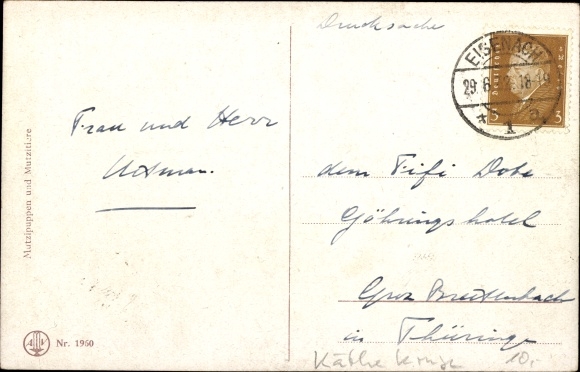 Drucksache
EISENACH
29.6. 18-19
1 a
Deutsches Reich
3 3
Frau und Herr
dem Fifi Dohe
Göhringshotel
Gros Breitenbach
in Thüringe
Käthe Kruse 10,-
Mutzipuppen und Mutzitiere
Nr. 1960